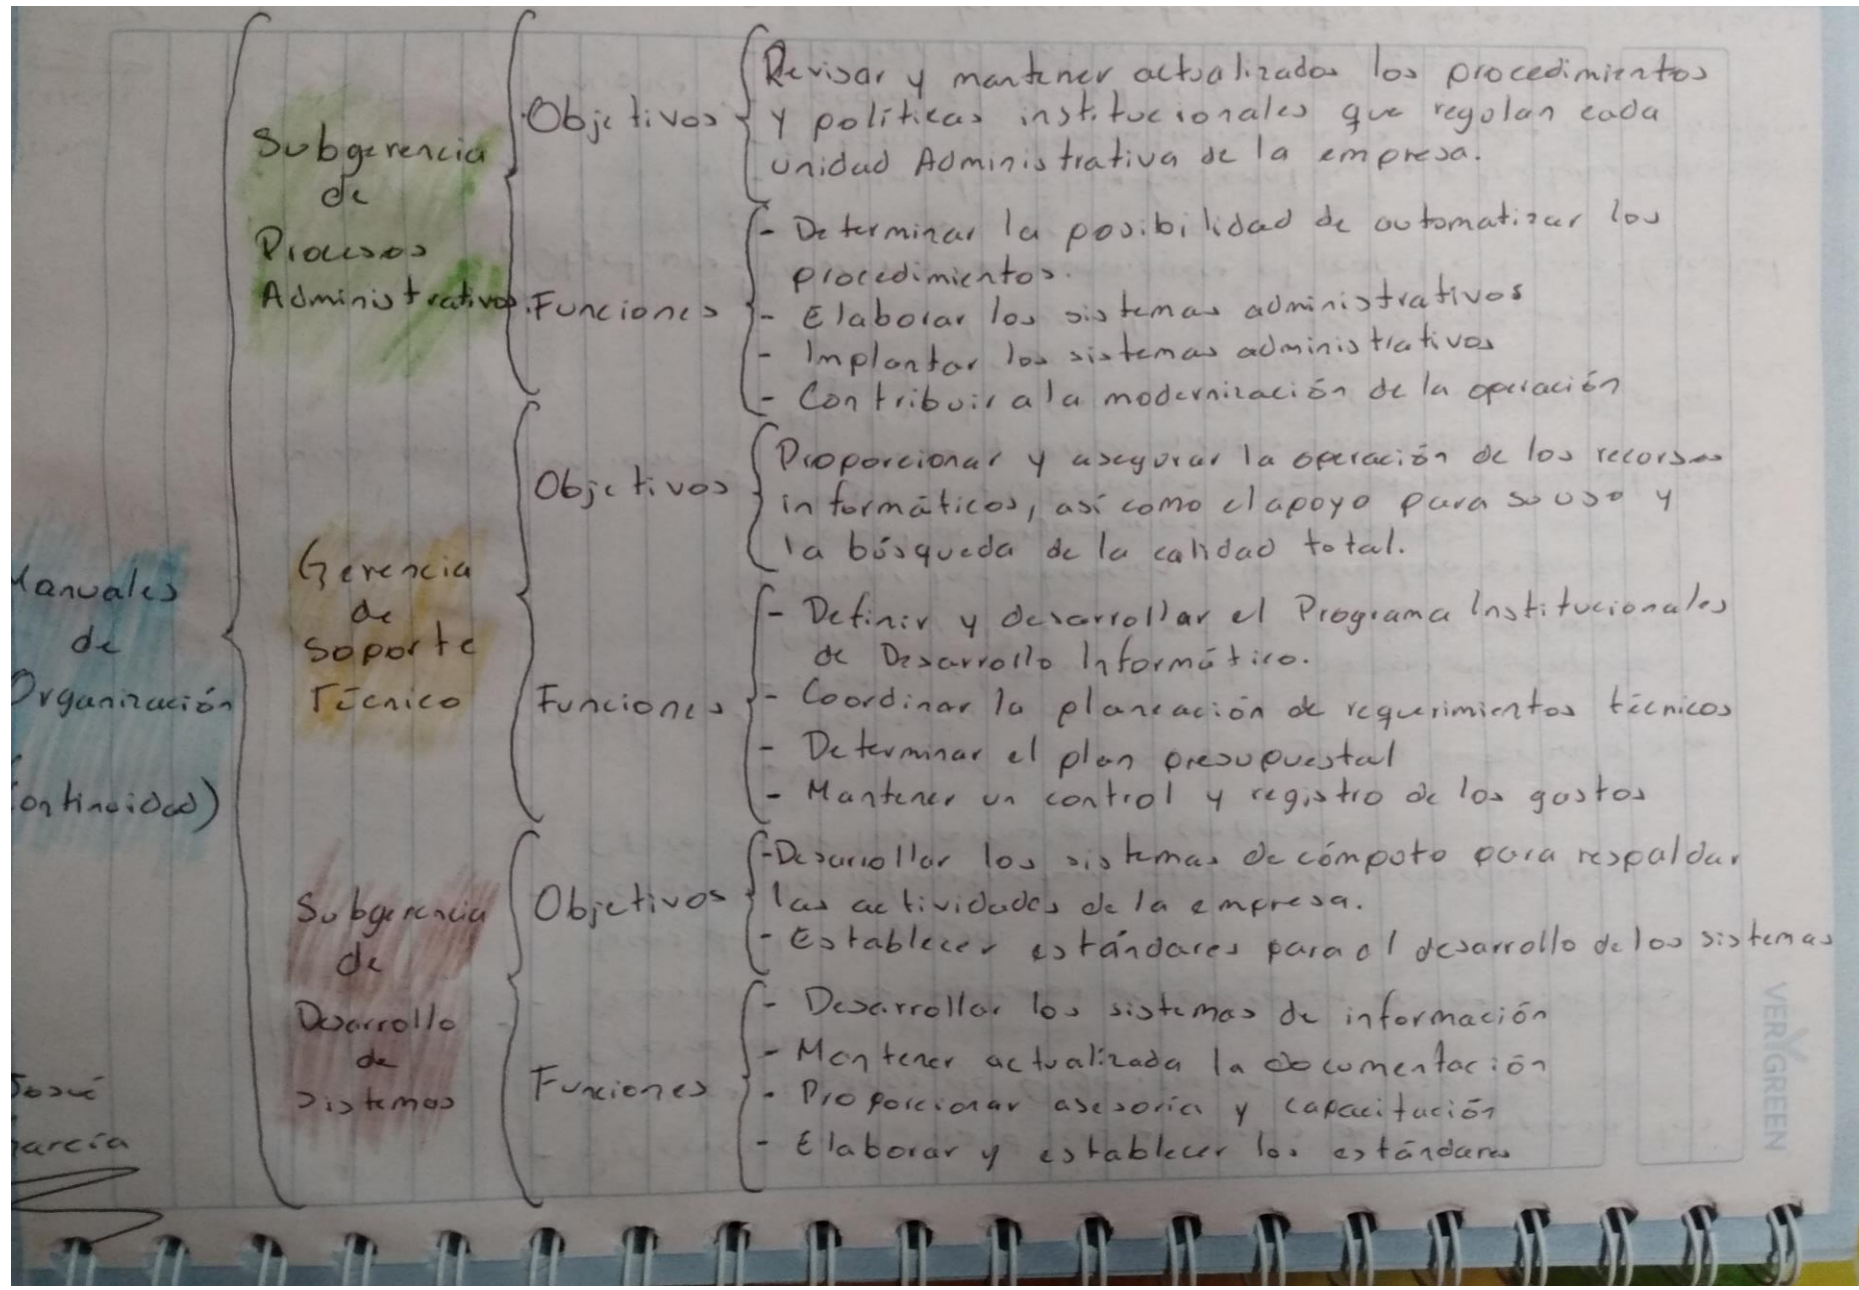 Manuales
de
Organización
(Continuidad)
Josué
García
Subgerencia
de
Procesos
Administrativos
Objetivos
Revisar y mantener actualizados los procedimientos
y políticas institucionales que regulan cada
unidad Administrativa de la empresa.
Funciones
- Determinar la posibilidad de automatizar los
procedimientos.
- Elaborar los sistemas administrativos
- Implantar los sistemas administrativos
- Contribuir a la modernización de la operación
Gerencia
de
Soporte
Técnico
Objetivos
Proporcionar y asegurar la operación de los recursos
informáticos, así como el apoyo para su uso y
la búsqueda de la calidad total.
Funciones
- Definir y desarrollar el Programa Institucionales
de Desarrollo Informático.
- Coordinar la planeación de requerimientos técnicos
- Determinar el plan presupuestal
- Mantener un control y registro de los gastos
Subgerencia
de
Desarrollo
de
sistemas
Objetivos
- Desarrollar los sistemas de cómputo para respaldar
las actividades de la empresa.
- Establecer estándares para el desarrollo de los sistemas
Funciones
- Desarrollar los sistemas de información
- Mantener actualizada la documentación
- Proporcionar asesoría y capacitación
- Elaborar y establecer los estándares
VERYGREEN